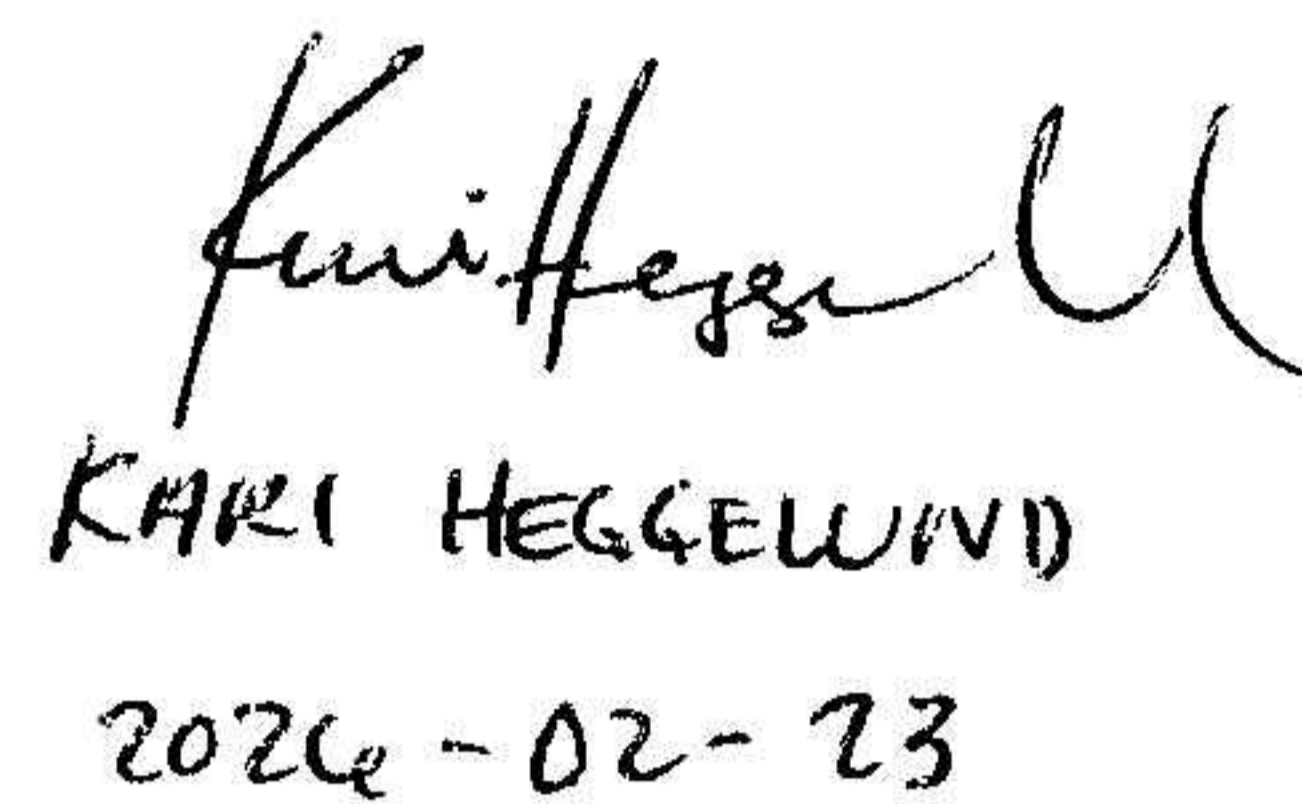 Kari Hegge
KARI HEGGELUND
2026-02-23